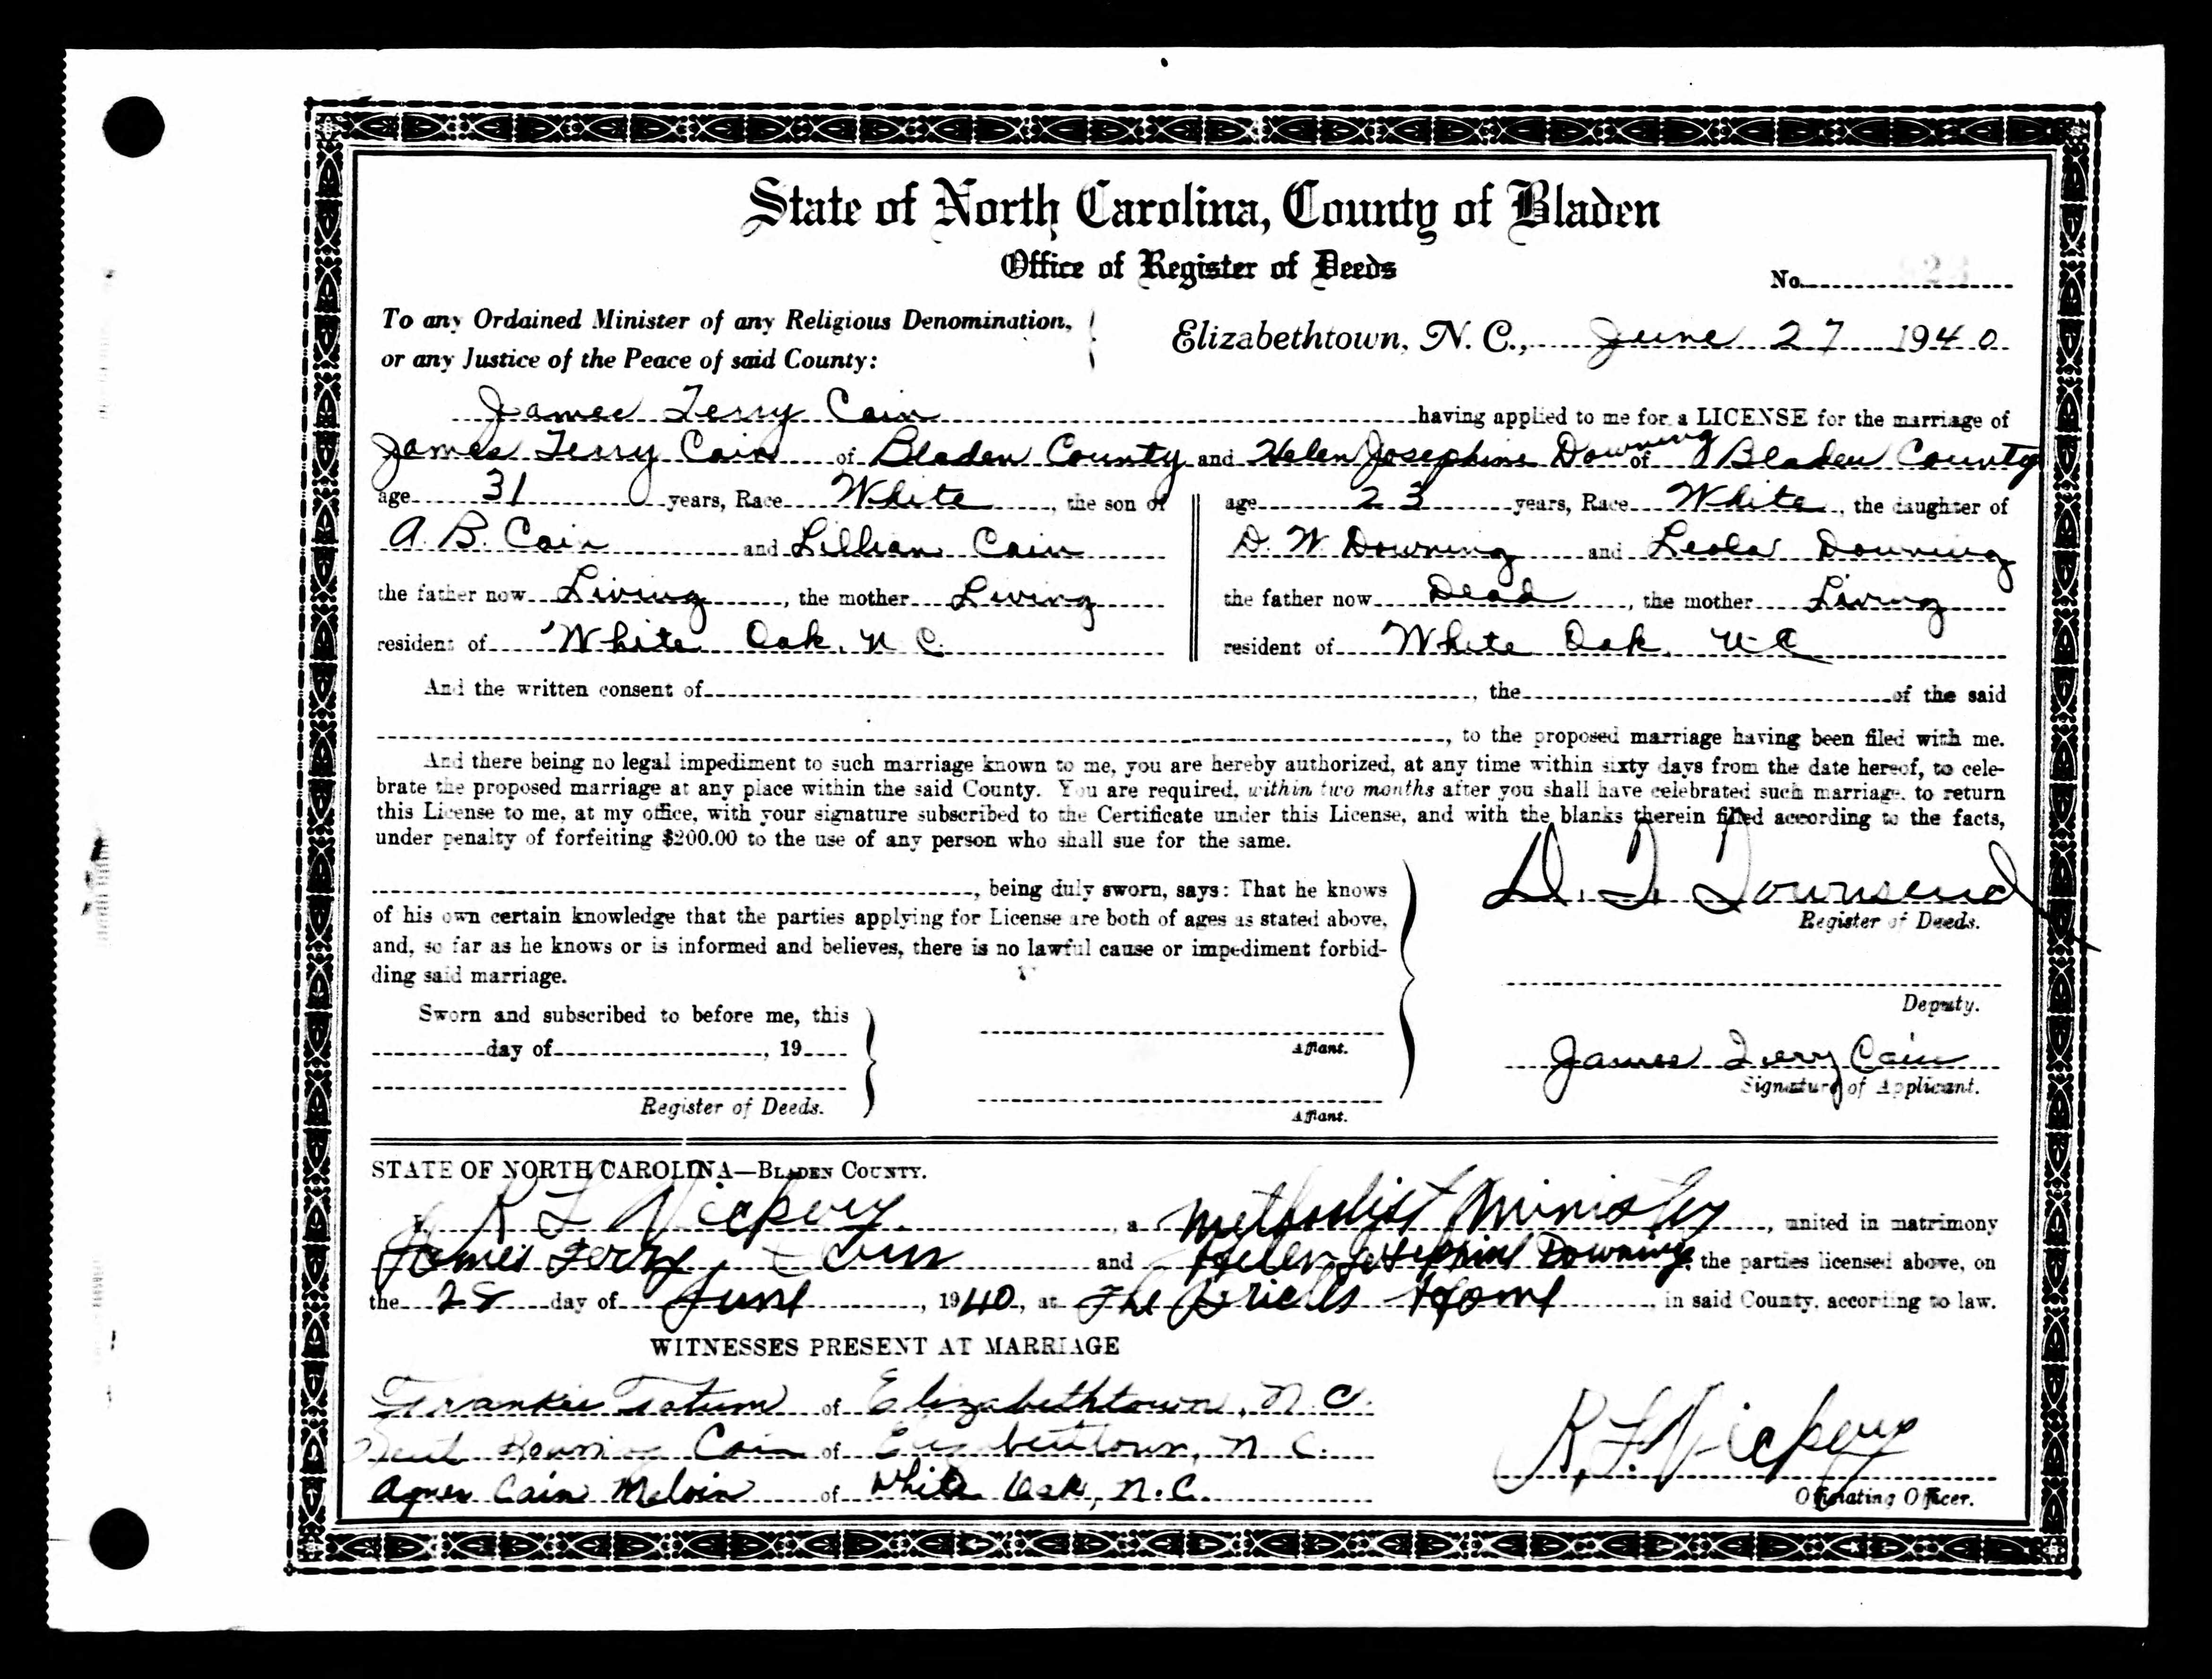 State of North Carolina, County of Bladen
Office of Register of Deeds
No.
To any Ordained Minister of any Religious Denomination,
or any Justice of the Peace of said County:
Elizabethtown, N. C., June 27 1940
James Terry Cain having applied to me for a LICENSE for the marriage of
James Terry Cain of Bladen County and Helen Josephine Downing of Bladen County
age 31 years, Race White, the son of
A. B. Cain and Lillian Cain
the father now Living, the mother Living
resident of White Oak, N C.
age 23 years, Race White, the daughter of
D. W. Downing and Leola Downing
the father now Dead, the mother Living
resident of White Oak, N C
And the written consent of , the of the said
, to the proposed marriage having been filed with me.
And there being no legal impediment to such marriage known to me, you are hereby authorized, at any time within sixty days from the date hereof, to cele-
brate the proposed marriage at any place within the said County. You are required, within two months after you shall have celebrated such marriage, to return
this License to me, at my office, with your signature subscribed to the Certificate under this License, and with the blanks therein filled according to the facts,
under penalty of forfeiting $200.00 to the use of any person who shall sue for the same.
, being duly sworn, says: That he knows
of his own certain knowledge that the parties applying for License are both of ages as stated above,
and, so far as he knows or is informed and believes, there is no lawful cause or impediment forbid-
ding said marriage.
Sworn and subscribed to before me, this
day of , 19
Register of Deeds.
Affiant.
Affiant.
D. T. Townsend
Register of Deeds.
Deputy.
James Terry Cain
Signature of Applicant.
STATE OF NORTH CAROLINA—BLADEN COUNTY.
I, R L Vickery, a Methodist Minister, united in matrimony
James Terry Cain and Helen Josephine Downing, the parties licensed above, on
the 28 day of June, 1940, at The Brides Home, in said County, according to law.
WITNESSES PRESENT AT MARRIAGE
Frankie Tatum of Elizabethtown, N.C.
Downing Cain of Elizabethtown, N. C.
Agnes Cain Melvin of White Oak, N.C.
R. L. Vickery
Officiating Officer.